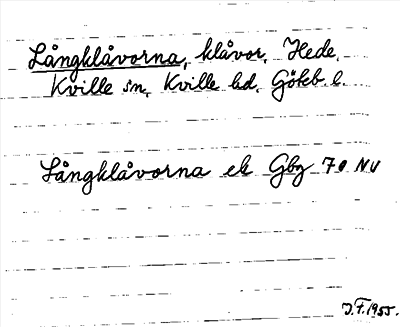 Långklåvorna, klåvor, Hede,
Kville sn, Kville hd, Göteb. l.
Långklåvorna ek Gbg 70 NV
J.F. 1955.